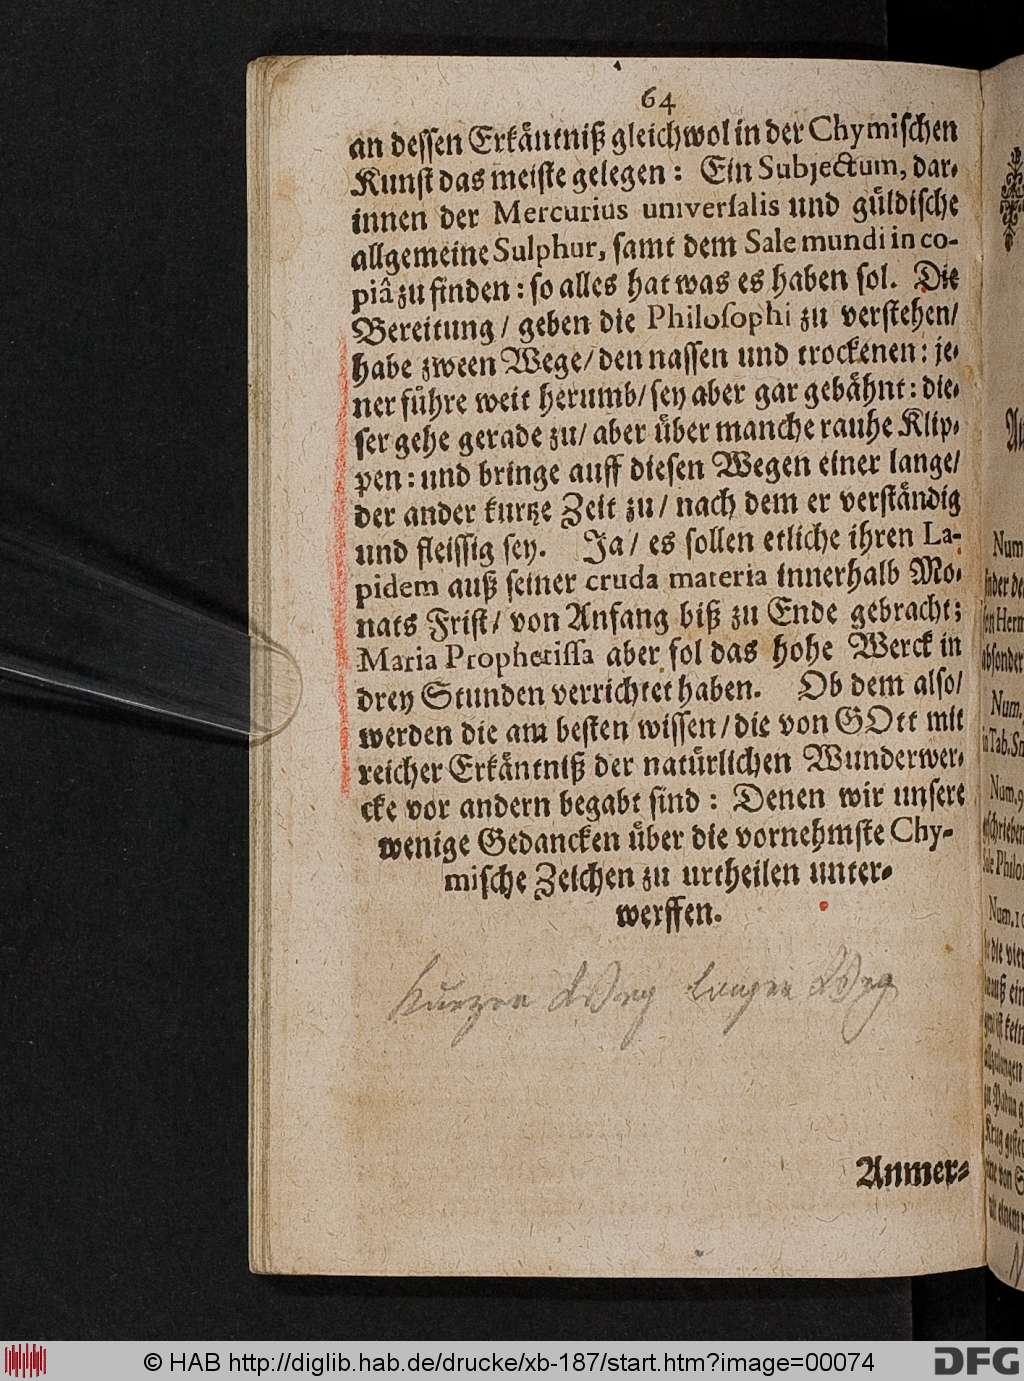 64
an dessen Erkäntniß gleichwol in der Chymischen
Kunst das meiste gelegen: Ein Subjectum, dar-
innen der Mercurius universalis und güldische
allgemeine Sulphur, samt dem Sale mundi in co-
piâ zu finden: so alles hat was es haben sol. Die
Bereitung/ geben die Philosophi zu verstehen/
habe zween Wege/ den nassen und trockenen: je-
ner führe weit herumb/ sey aber gar gebähnt: die-
ser gehe gerade zu/ aber über manche rauhe Klip-
pen: und bringe auff diesen Wegen einer lange/
der ander kurtze Zeit zu/ nach dem er verständig
und fleissig sey. Ja/ es sollen etliche ihren La-
pidem auß seiner cruda materia innerhalb Mo-
nats Frist/ von Anfang biß zu Ende gebracht;
Maria Prophetissa aber sol das hohe Werck in
drey Stunden verrichtet haben. Ob dem also/
werden die am besten wissen/ die von GOtt mit
reicher Erkäntniß der natürlichen Wunderwer-
cke vor andern begabt sind: Denen wir unsere
wenige Gedancken über die vornehmste Chy-
mische Zeichen zu urtheilen unter-
werffen.
Kurzen Weg langen Weg
Anmer-
Num
Num.
in Tab. Sm
Num. 9
Num. 10
© HAB http://diglib.hab.de/drucke/xb-187/start.htm?image=00074
DFG